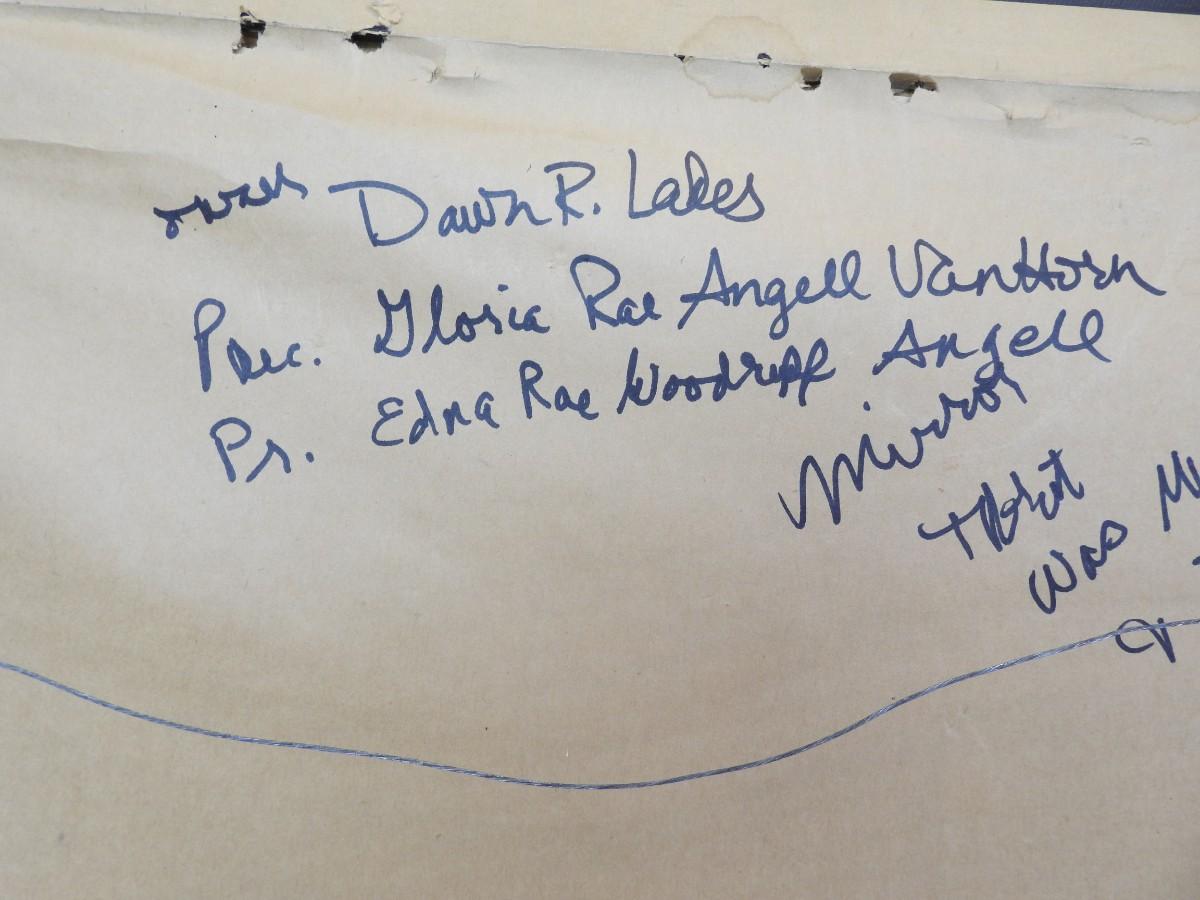 Dawn R. Lakes
Prec. Gloria Rae Angell VanHorn
Pr. Edna Rae Woodruff Angell
Mirror
that
was